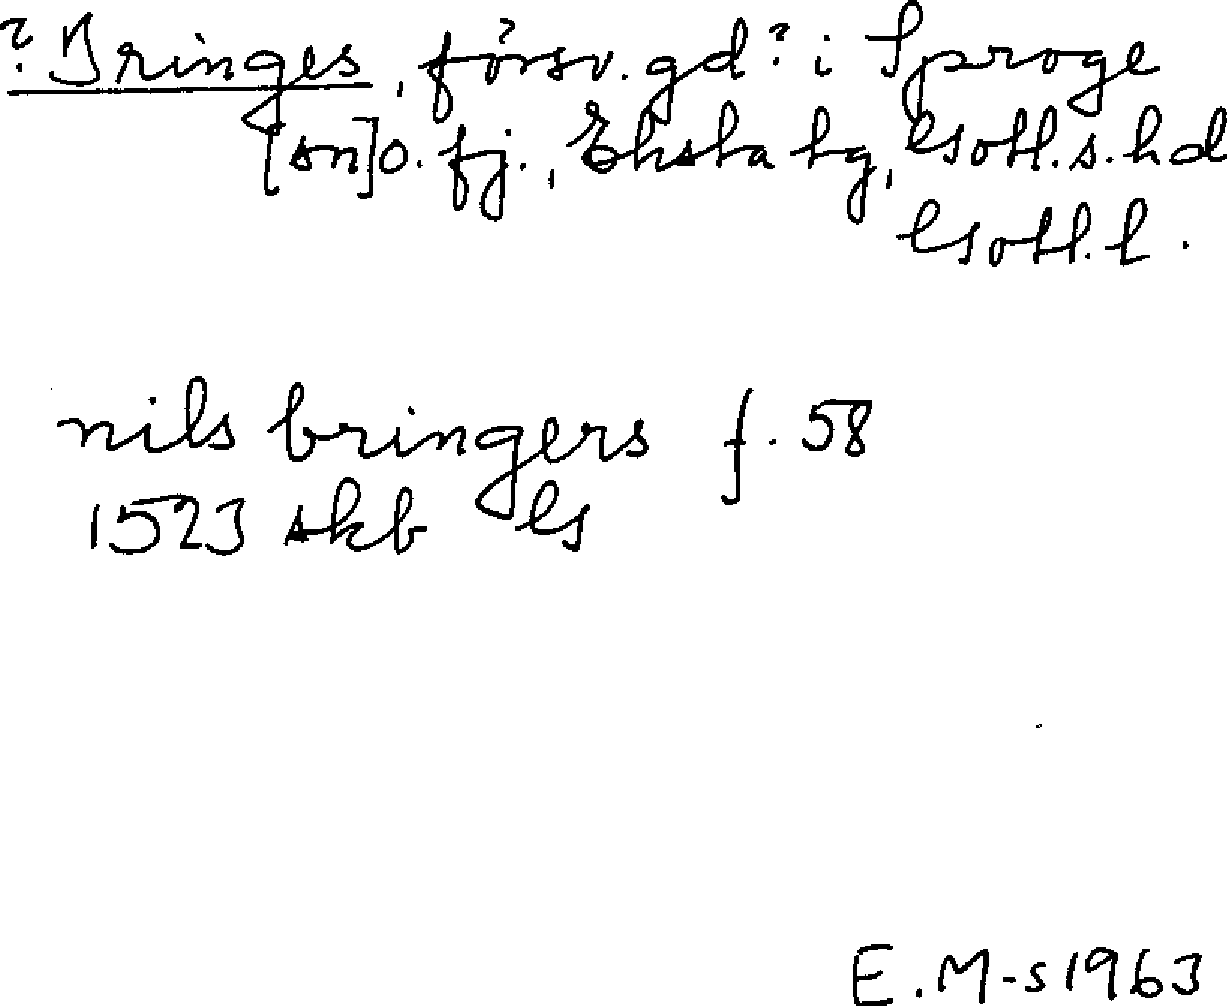 ? Bringes, försv. gd? i Sproge
[sn] o. fj., Eksta tg, Gotl. s. hd
Gotl. l.
nils bringers f. 58
1523 skb G
E. M-s 1963